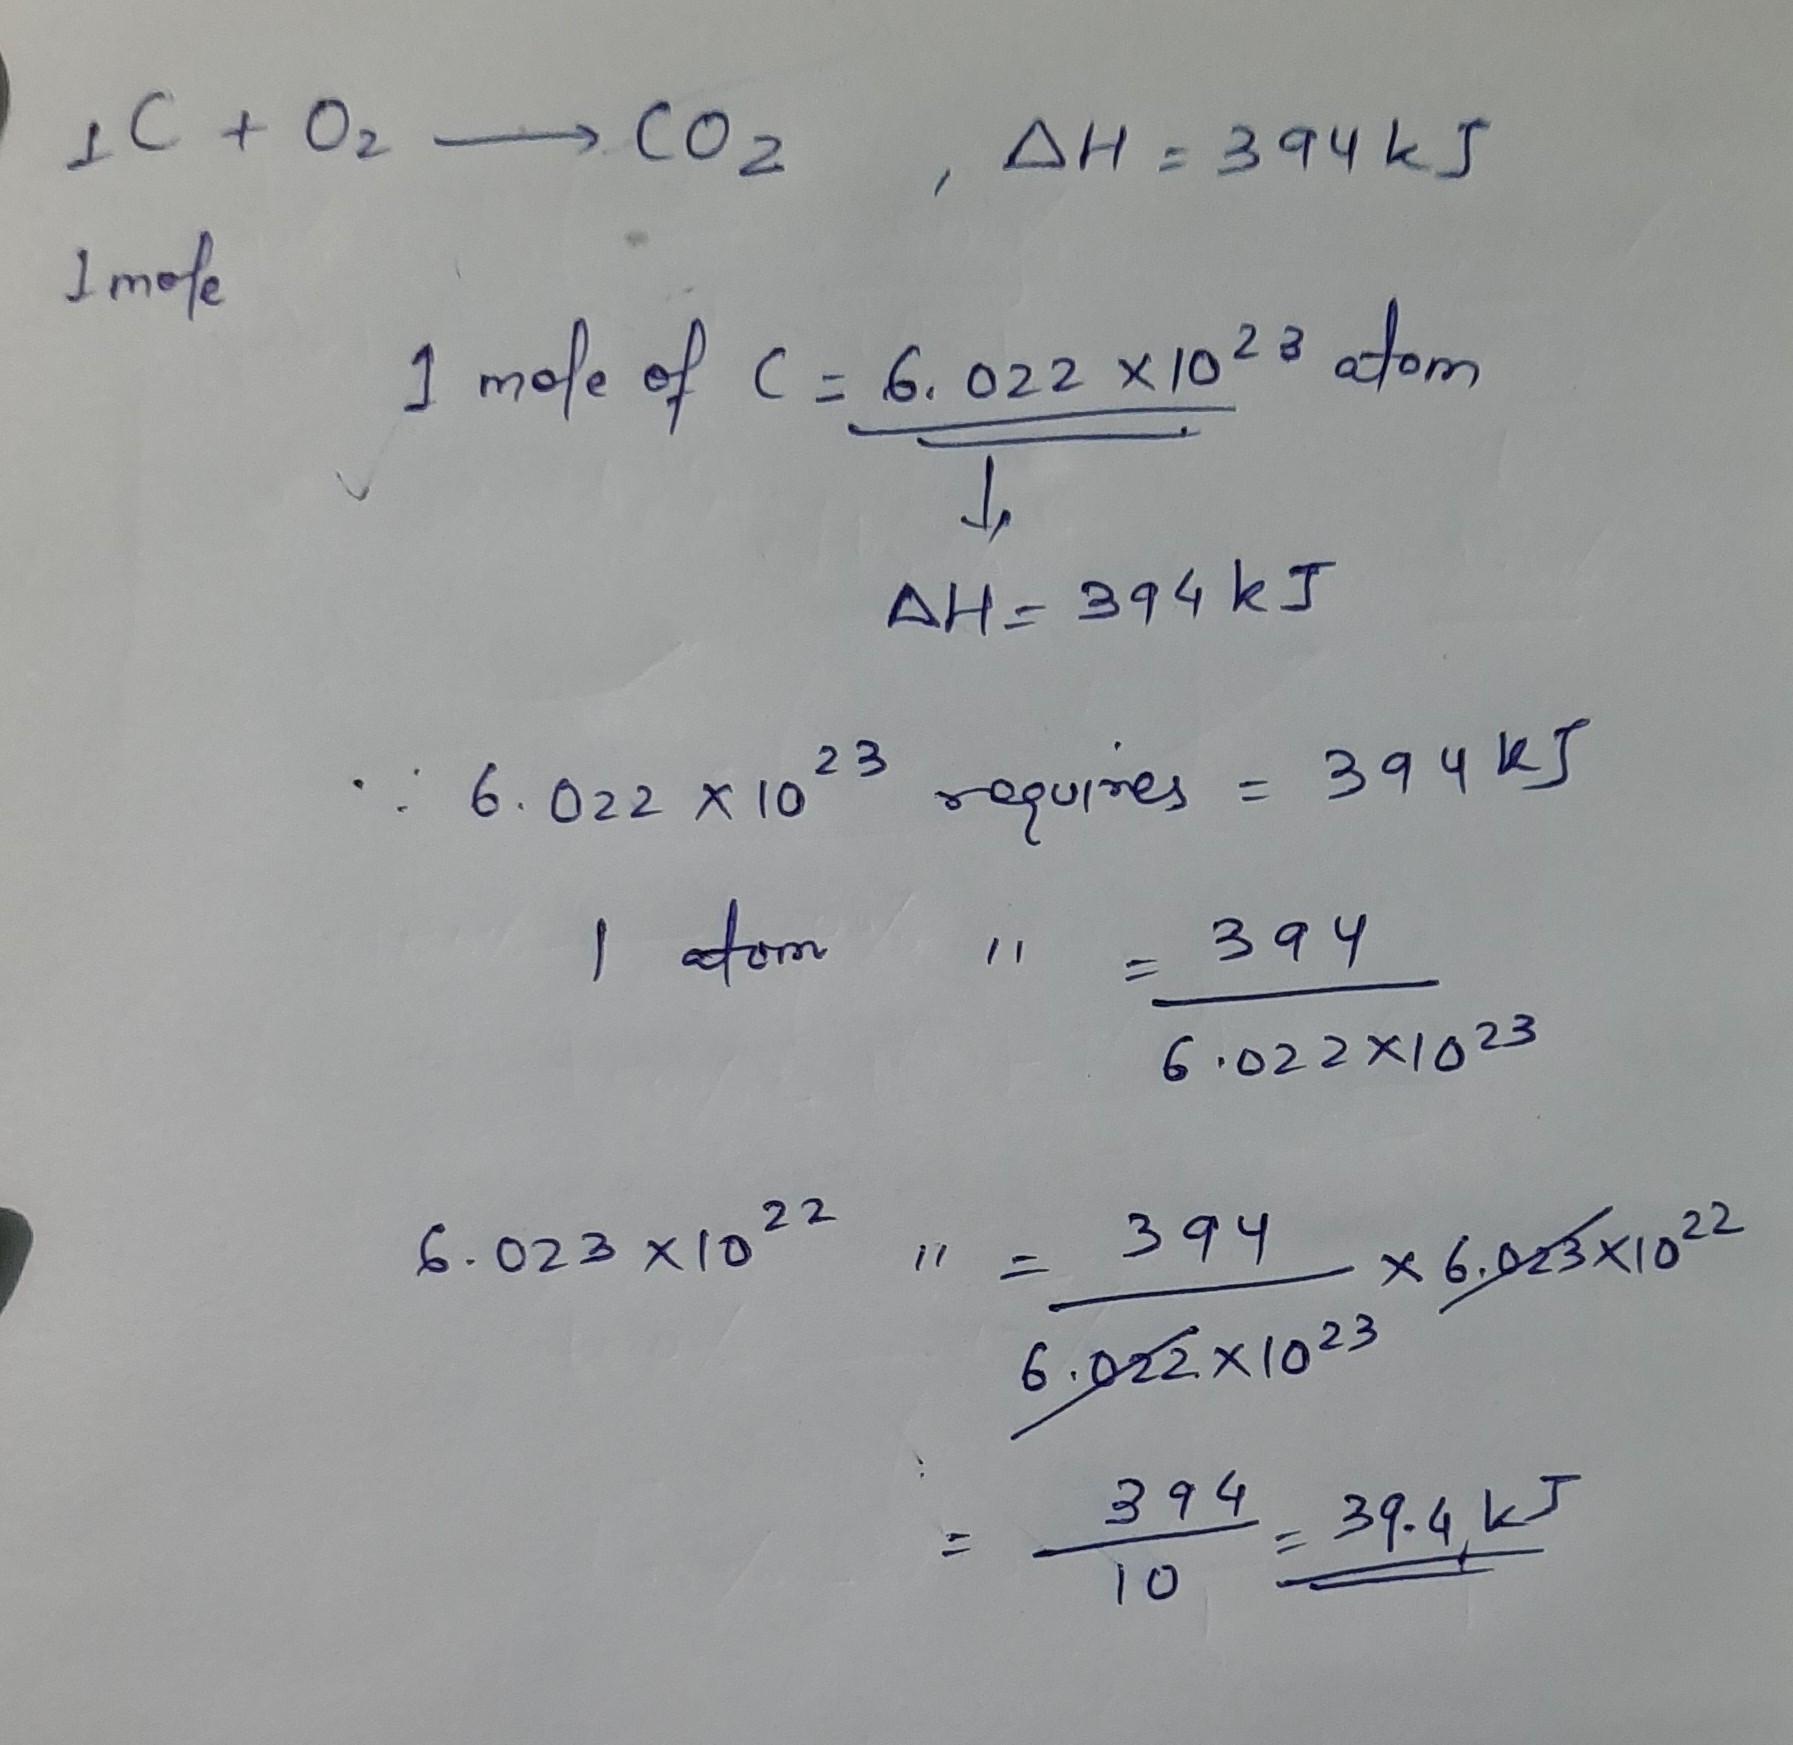 1C + O₂ → CO₂ , ΔH = 394 kJ
1 mole
1 mole of C = 6.022 × 10²³ atom
↓
ΔH = 394 kJ
∵ 6.022 × 10²³ requires = 394 kJ
1 atom " = 394 / 6.022 × 10²³
6.023 × 10²² " = 394 / 6.022 × 10²³ × 6.023 × 10²²
= 394 / 10 = 39.4 kJ